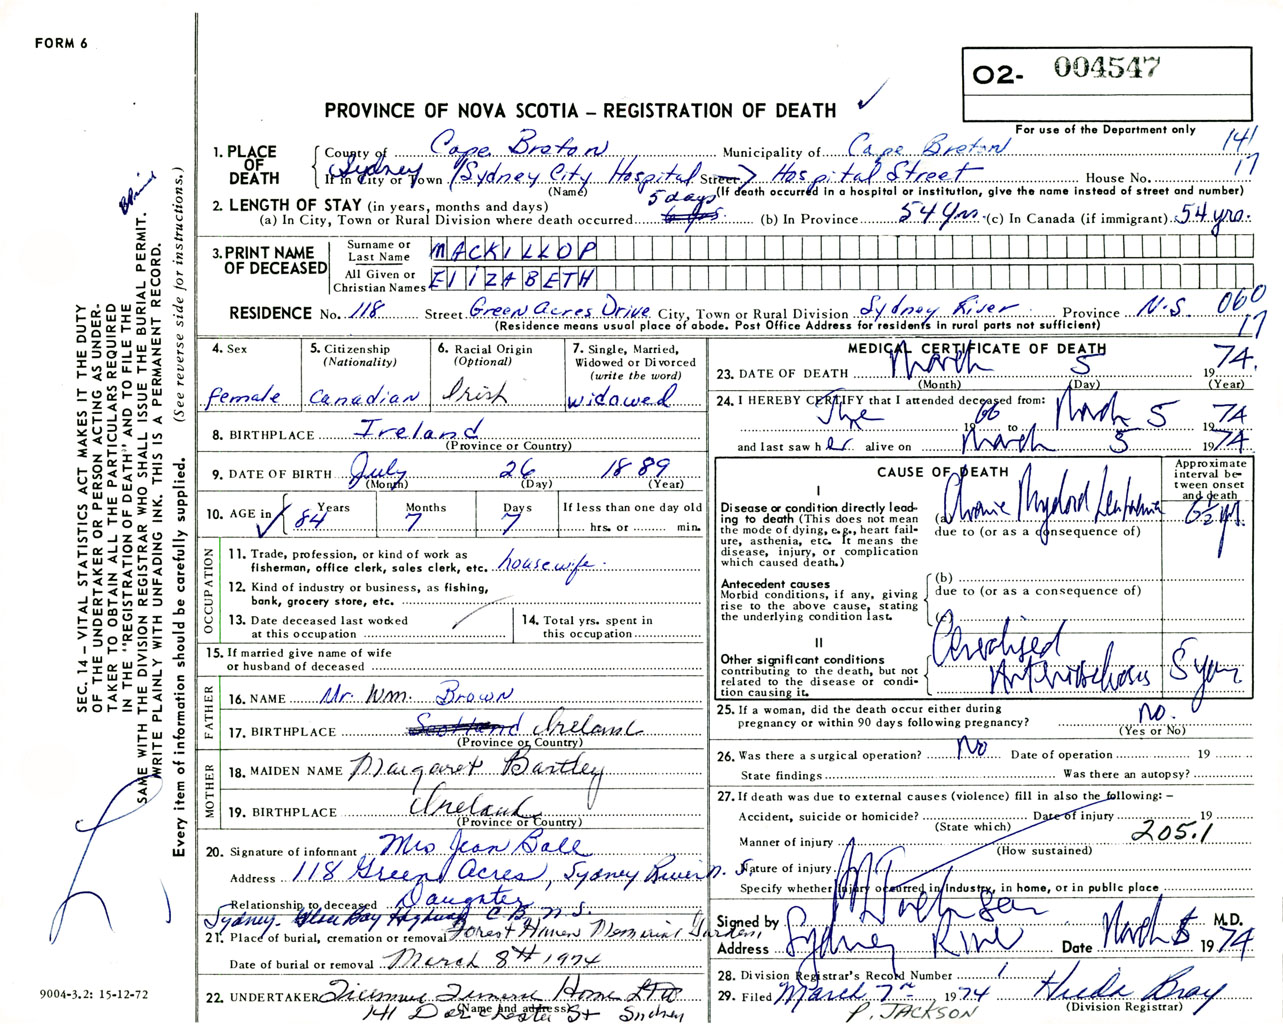 FORM 6
O2- 004547
PROVINCE OF NOVA SCOTIA – REGISTRATION OF DEATH ✓
For use of the Department only
141
17
1. PLACE OF DEATH
County of Cape Breton Municipality of Cape Breton
If in City or Town Sydney (Sydney City Hospital Street Hospital Street House No.
(Name) (If death occurred in a hospital or institution, give the name instead of street and number)
2. LENGTH OF STAY (in years, months and days)
(a) In City, Town or Rural Division where death occurred 5 days (b) In Province 54 yrs. (c) In Canada (if immigrant) 54 yrs.
3. PRINT NAME OF DECEASED
Surname or Last Name MACKILLOP
All Given or Christian Names ELIZABETH
RESIDENCE No. 118 Street Green Acres Drive City, Town or Rural Division Sydney River Province N.S. 060
17
(Residence means usual place of abode. Post Office Address for residents in rural parts not sufficient)
4. Sex female
5. Citizenship (Nationality) Canadian
6. Racial Origin (Optional) Irish
7. Single, Married, Widowed or Divorced (write the word) widowed
8. BIRTHPLACE Ireland
(Province or Country)
9. DATE OF BIRTH July 26 1889
(Month) (Day) (Year)
10. AGE in Years 84 Months 7 Days 7 If less than one day old
hrs. or min.
OCCUPATION
11. Trade, profession, or kind of work as fisherman, office clerk, sales clerk, etc. housewife.
12. Kind of industry or business, as fishing, bank, grocery store, etc.
13. Date deceased last worked at this occupation
14. Total yrs. spent in this occupation
15. If married give name of wife or husband of deceased
FATHER
16. NAME Mr. Wm. Brown
17. BIRTHPLACE Scotland Ireland
(Province or Country)
MOTHER
18. MAIDEN NAME Margaret Bartley
19. BIRTHPLACE Ireland
(Province or Country)
20. Signature of informant Mrs Jean Ball
Address 118 Green Acres, Sydney River N.S.
Relationship to deceased Daughter
Sydney. Glace Bay Highway C.B. N.S.
21. Place of burial, cremation or removal Forest Haven Memorial Gardens
Date of burial or removal March 8th 1974
22. UNDERTAKER Funeral Home Ltd
(Name and address)
141 Dorchester St Sydney
MEDICAL CERTIFICATE OF DEATH
23. DATE OF DEATH March 5 1974.
(Month) (Day) (Year)
24. I HEREBY CERTIFY that I attended deceased from:
1966 to March 5 1974
and last saw her alive on March 5 1974
CAUSE OF DEATH
Approximate interval between onset and death
I
Disease or condition directly leading to death (This does not mean the mode of dying, e.g., heart failure, asthenia, etc. It means the disease, injury, or complication which caused death.)
(a) Chronic Myeloid Leukemia 6½ yr.
due to (or as a consequence of)
Antecedent causes
Morbid conditions, if any, giving rise to the above cause, stating the underlying condition last.
(b)
due to (or as a consequence of)
(c)
II
Other significant conditions contributing to the death, but not related to the disease or condition causing it.
Generalised Arteriosclerosis 5 years
25. If a woman, did the death occur either during pregnancy or within 90 days following pregnancy? No.
(Yes or No)
26. Was there a surgical operation? No Date of operation 19
State findings Was there an autopsy?
27. If death was due to external causes (violence) fill in also the following: –
Accident, suicide or homicide? Date of injury 19
(State which)
Manner of injury 205.1
(How sustained)
Nature of injury
Specify whether injury occurred in industry, in home, or in public place
Signed by M.D.
Address Sydney River Date March 5 1974
28. Division Registrar's Record Number 1
29. Filed March 7th 1974 Bray
P. JACKSON (Division Registrar)
SEC. 14 – VITAL STATISTICS ACT MAKES IT THE DUTY
OF THE UNDERTAKER OR PERSON ACTING AS UNDER-
TAKER TO OBTAIN ALL THE PARTICULARS REQUIRED
IN THE "REGISTRATION OF DEATH" AND TO FILE THE
SAME WITH THE DIVISION REGISTRAR WHO SHALL ISSUE THE BURIAL PERMIT.
WRITE PLAINLY WITH UNFADING INK. THIS IS A PERMANENT RECORD.
Every item of information should be carefully supplied. (See reverse side for instructions.)
9004-3.2: 15-12-72